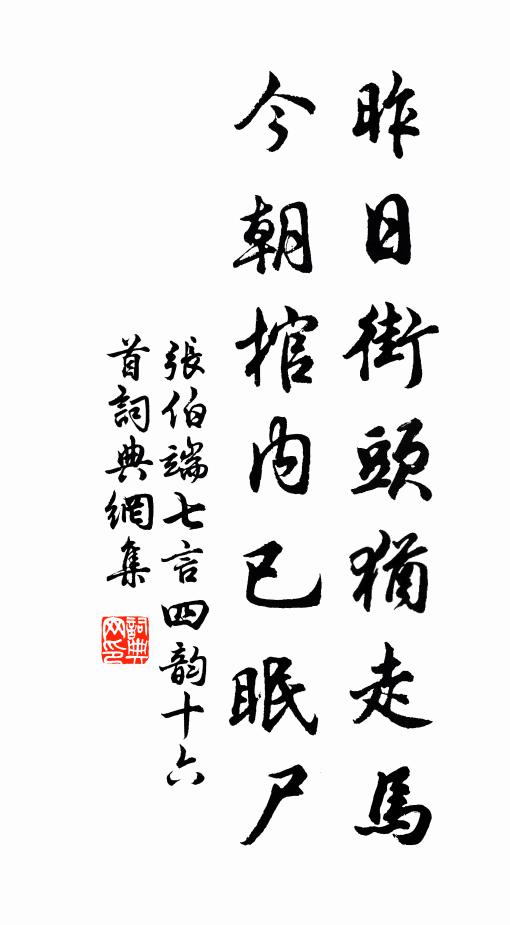 昨日街頭猶走馬
今朝棺内已眠尸
張伯端七言四韵十六
首詞典網集
詞典网印